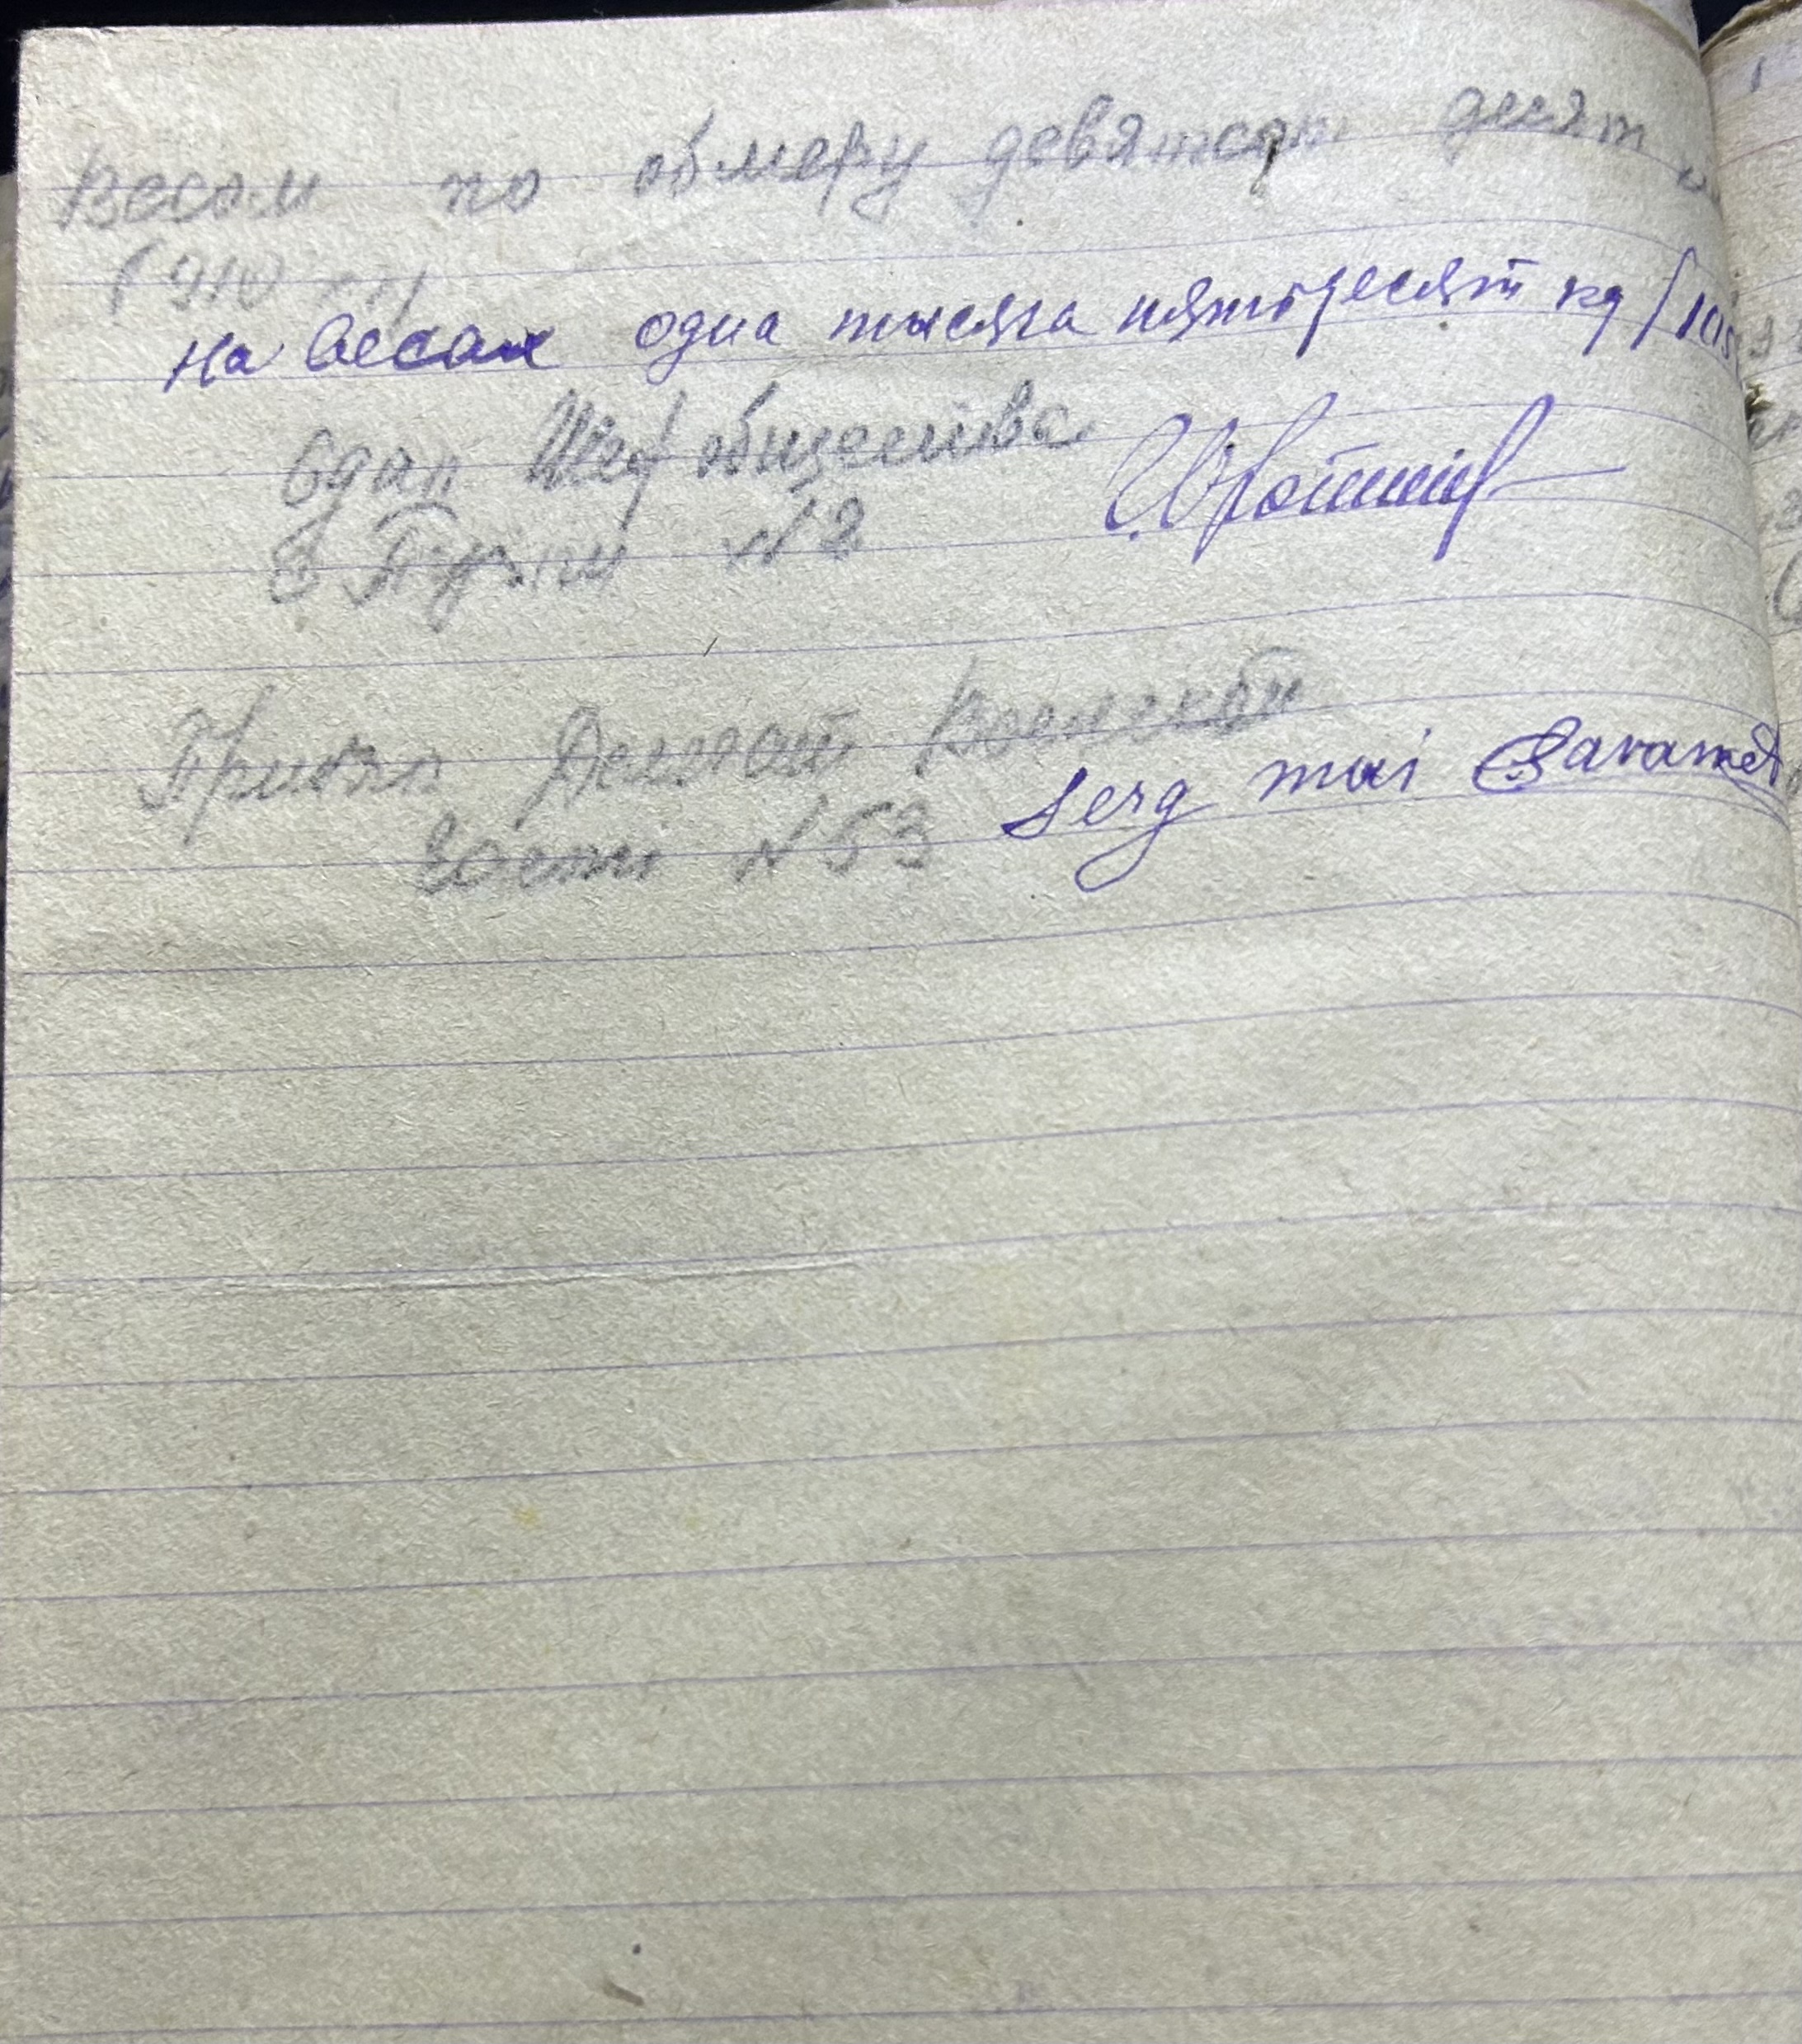 Весом по обмеру девятсот десят
(910 кг)
на весах одна тысяча пятьдесят кг /105
Сдал Шеф общества
в Пункт №2
Принял Делегат Воинской
Части № 53 serg mai